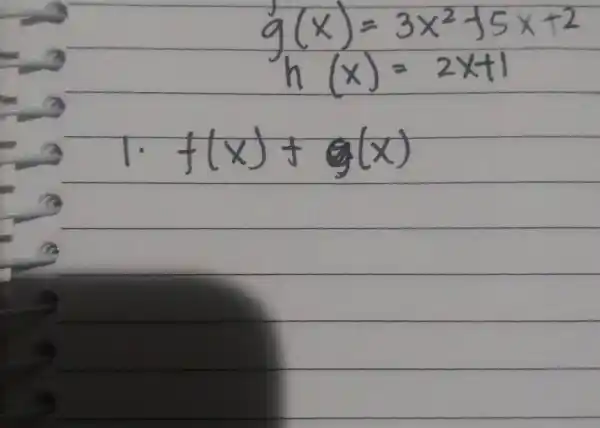 g(x) = 3x² + 5x + 2
h (x) = 2x+1
1. f(x) + g(x)